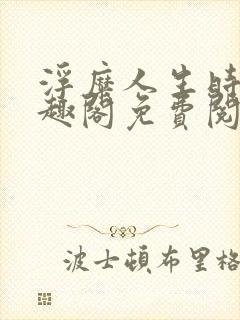 浮靡人生時
趣閣免費閱
波士頓布里格